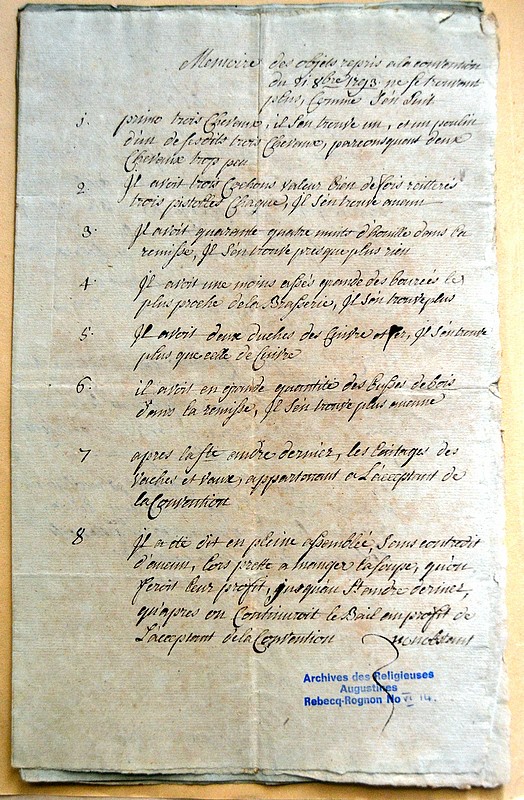 Memoire des objets repris a la convention
du 8bre 1793 ne se trouvant
plus, Comme S'en Suit
1. primo trois Chevaux, il S'en trouve un, et un poulin
d'un de sesdits trois Chevaux, parconsquent deux
Chevaux trop peu
2. Il avoit trois Cochons valeur bien de fois reitterés
trois pistolles Chaque, Il S'en trouve aucun
3. Il avoit quarante quatre muits d'houille dans la
remisse, Il S'en trouve presque plus rien
4. Il avoit une moins assés grande des bourées le
plus proche de la Brasserie, Il S'en trouve plus
5. Il avoit deux duches des Cuivre et fer, Il S'en trouve
plus que celle de Cuivre
6. il avoit en grande quantité des busses de bois
dans la remisse, Il S'en trouve plus aucune
7 apres la Ste andré dernier, les laitages des
vaches et vaux, appartenant a L'acceptant de
la Convention
8 Il a été dit en pleine assemblée, Sans contredit
d'aucun, lors prette a manger la Soupe, qu'on
feroit leur profit, jusqu'au St andre dernier,
qu'apres on Continuroit le Bail au profit de
L'acceptant de la Convention
Archives des Religieuses
Augustines
Rebecq-Rognon No VI 14.